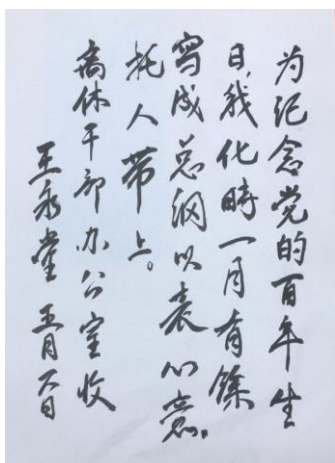 为纪念党的百年生
日,我化時一月有餘
寫成总纲以表心意。
托人带上。
离休干部办公室收
王永堂 五月日